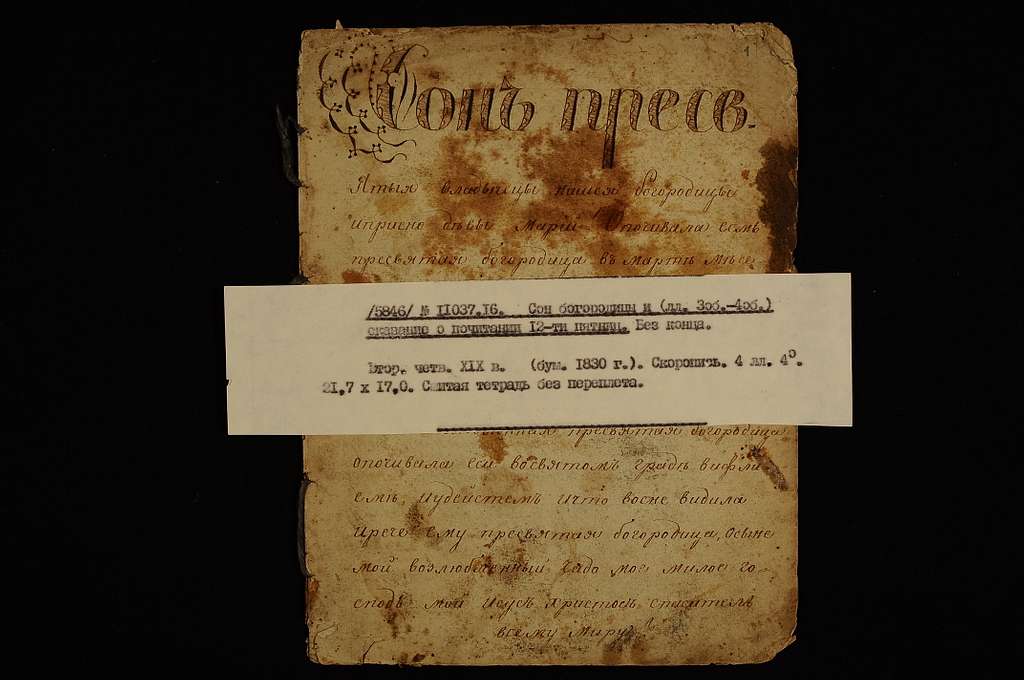 1
Сонъ пресв.
ятыя владычцы нашея богородицы
иприсно дѣвы Марiи Опочивала есмь
пресвятая богородица въ мартѣ мѣсе
/5846/ № II037.I6. Сон богородицы и (лл. 3об.-4об.)
сказание о почитании I2-ти пятниц. Без конца.
Втор. четв. XIX в. (бум. I830 г.). Скоропись. 4 лл. 4°.
2I,7 х I7,0. Сшитая тетрадь без переплета.
пресвятая богородица
опочивала еси восвятомъ градѣ вифли
емѣ иудейстемъ ичто восне видила
ирече ему пресвятая богородица, Осыне
мой возлюбленный чадо мое милое го-
сподь мой Исусъ христосъ спаситель
всему миру